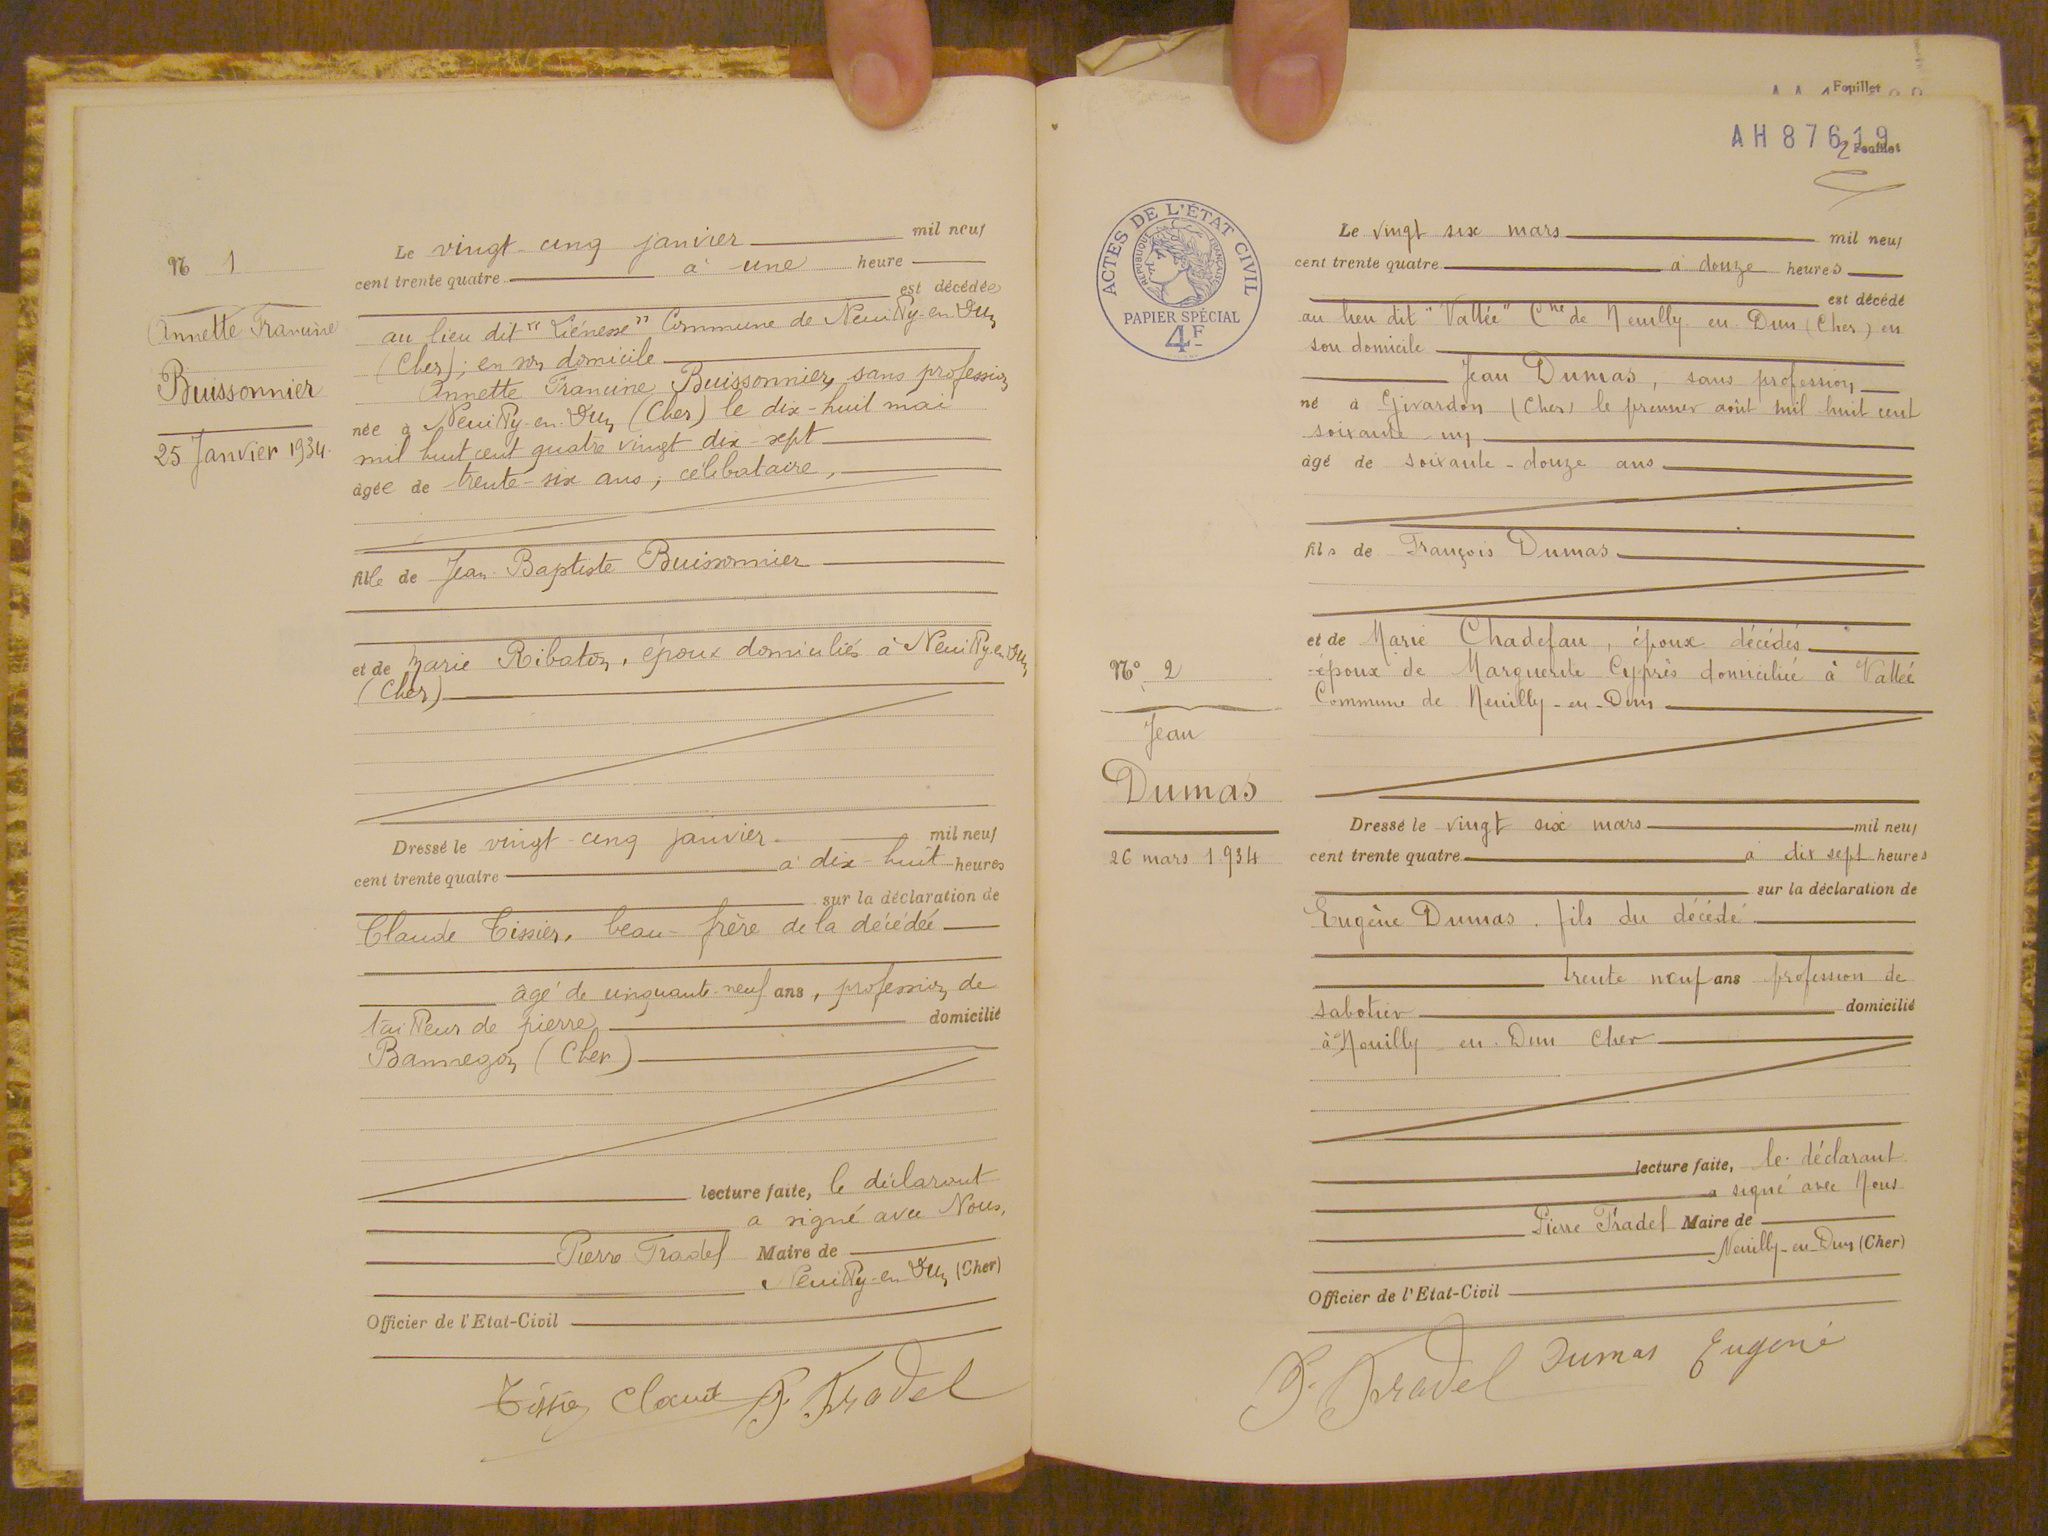 N° 1
Annette Francine
Buissonnier
25 Janvier 1934.
Le vingt cinq janvier mil neuf
cent trente quatre à une heure
est décédée
au lieu dit " Liénesse" Commune de Neuilly-en-Dun
(Cher); en son domicile
Annette Francine Buissonnier, sans profession
née à Neuilly-en-Dun (Cher) le dix-huit mai
mil huit cent quatre vingt dix-sept
âgée de trente-six ans, célibataire,
fille de Jean-Baptiste Buissonnier
et de Marie Ribaton, époux domiciliés à Neuilly-en-Dun
(Cher)
Dressé le vingt cinq janvier mil neuf
cent trente quatre à dix-huit heures
sur la déclaration de
Claude Tissier, beau-frère de la décédée
âgé de cinquante-neuf ans, profession de
tailleur de pierre domicilié
Bannegon (Cher)
lecture faite, le déclarant
a signé avec Nous,
Pierre Pradel Maire de
Neuilly-en-Dun (Cher)
Officier de l'Etat-Civil
Tissier Claude P. Pradel
Feuillet
AH 87619
2 Feuillet
ACTES DE L'ÉTAT CIVIL
RÉPUBLIQUE FRANÇAISE
PAPIER SPÉCIAL
4F
N° 2
Jean
Dumas
26 mars 1934
Le vingt six mars mil neuf
cent trente quatre à douze heures
est décédé
au lieu dit "Vallée" Cne de Neuilly-en-Dun (Cher) en
son domicile
Jean Dumas, sans profession
né à Givardon (Cher) le premier août mil huit cent
soixante-un
âgé de soixante-douze ans
fils de François Dumas
et de Marie Chadefau, époux décédés
époux de Marguerite Cyprès domiciliée à Vallée
Commune de Neuilly-en-Dun
Dressé le vingt six mars mil neuf
cent trente quatre à dix sept heures
sur la déclaration de
Eugène Dumas, fils du décédé
trente neuf ans profession de
sabotier domicilié
à Neuilly-en-Dun Cher
lecture faite, le déclarant
a signé avec Nous
Pierre Pradel Maire de
Neuilly-en-Dun (Cher)
Officier de l'Etat-Civil
P. Pradel Dumas Eugène